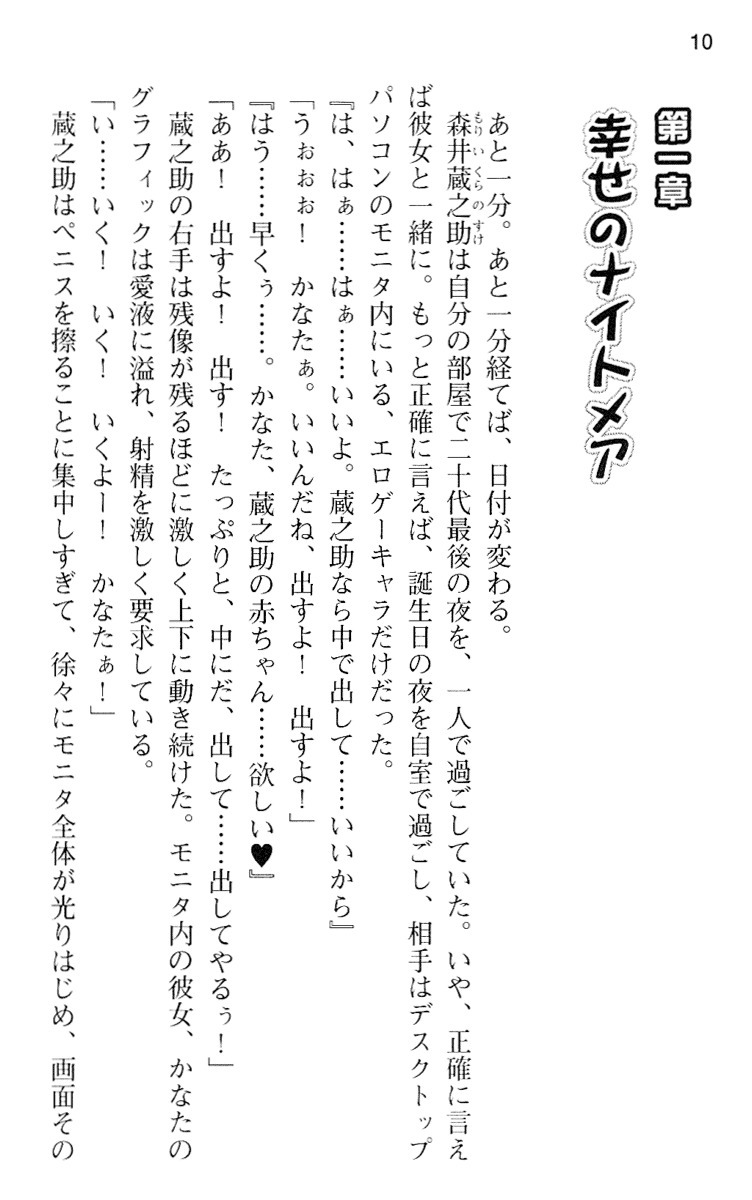 10
第一章
幸せのナイトメア
あと一分。あと一分経てば、日付が変わる。
森井蔵之助は自分の部屋で二十代最後の夜を、一人で過ごしていた。いや、正確に言え
ば彼女と一緒に。もっと正確に言えば、誕生日の夜を自室で過ごし、相手はデスクトップ
パソコンのモニタ内にいる、エロゲーキャラだけだった。
『は、はぁ……はぁ……いいよ。蔵之助なら中で出して……いいから』
「うぉぉぉ！　かなたぁ。いいんだね、出すよ！　出すよ！」
『はう……早くぅ……。かなた、蔵之助の赤ちゃん……欲しい♥』
「ああ！　出すよ！　出す！　たっぷりと、中にだ、出して……出してやるぅ！」
蔵之助の右手は残像が残るほどに激しく上下に動き続けた。モニタ内の彼女、かなたの
グラフィックは愛液に溢れ、射精を激しく要求している。
「い……いく！　いく！　いくよー！　かなたぁ！」
蔵之助はペニスを擦ることに集中しすぎて、徐々にモニタ全体が光りはじめ、画面その